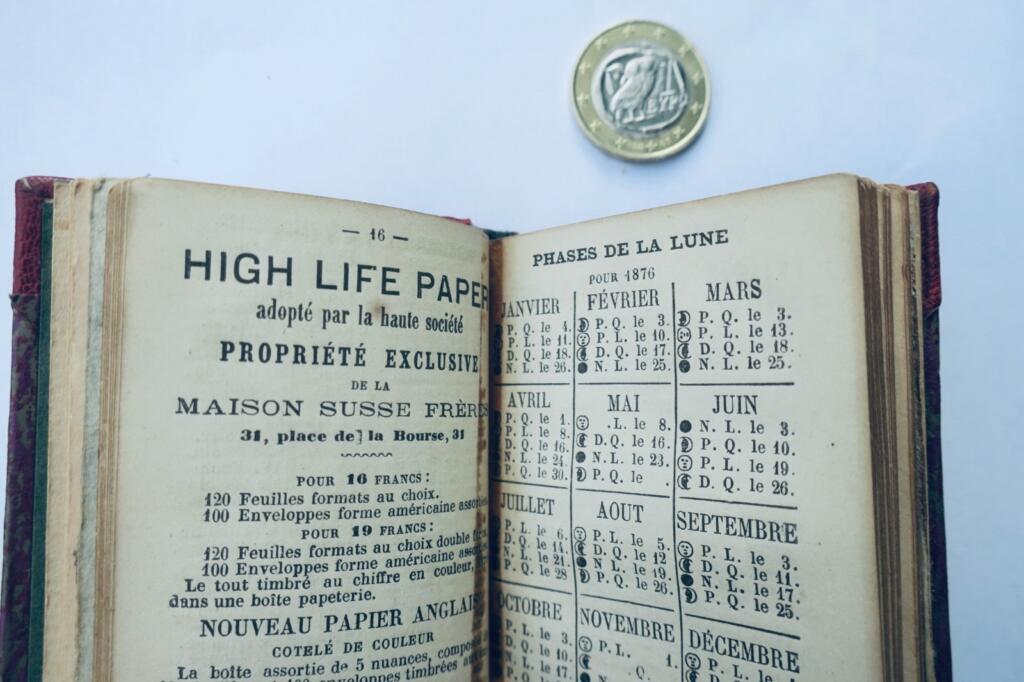 ΕΥΡΩ
— 16 —
HIGH LIFE PAPER
adopté par la haute société
PROPRIÉTÉ EXCLUSIVE
DE LA
MAISON SUSSE FRÈRES
31, place de la Bourse, 31
POUR 16 FRANCS:
120 Feuilles formats au choix.
100 Enveloppes forme américaine
POUR 19 FRANCS:
120 Feuilles formats au choix double
100 Enveloppes forme américaine
Le tout timbré au chiffre en couleur,
dans une boîte papeterie.
NOUVEAU PAPIER ANGLAIS
COTELÉ DE COULEUR
La boîte assortie de 5 nuances,
enveloppes timbrées
PHASES DE LA LUNE
POUR 1876
JANVIER
P. Q. le 4.
P. L. le 11.
D. Q. le 18.
N. L. le 26.
FÉVRIER
P. Q. le 3.
P. L. le 10.
D. Q. le 17.
N. L. le 25.
MARS
P. Q. le 3.
P. L. le 13.
D. Q. le 18.
N. L. le 25.
AVRIL
P. Q. le 1.
P. L. le 8.
D. Q. le 16.
N. L. le 24.
P. Q. le 30.
MAI
.L. le 8.
D. Q. le 16.
N. L. le 23.
P. Q. le .
JUIN
N. L. le 3.
P. Q. le 10.
P. L. le 19.
D. Q. le 26.
JUILLET
P. L. le 6.
D. Q. le 14.
N. L. le 21.
P. Q. le 28
AOUT
P. L. le 5.
D. Q. le 12
N. L. le 19.
P. Q. le 26.
SEPTEMBRE
P. L. le 3.
D. Q. le 11.
N. L. le 17.
P. Q. le 25.
OCTOBRE
P. L. le 3.
D. Q. le 10.
N. L. le 17.
NOVEMBRE
P. L. 1.
Q.
DÉCEMBRE
P. L. le
D. Q. le